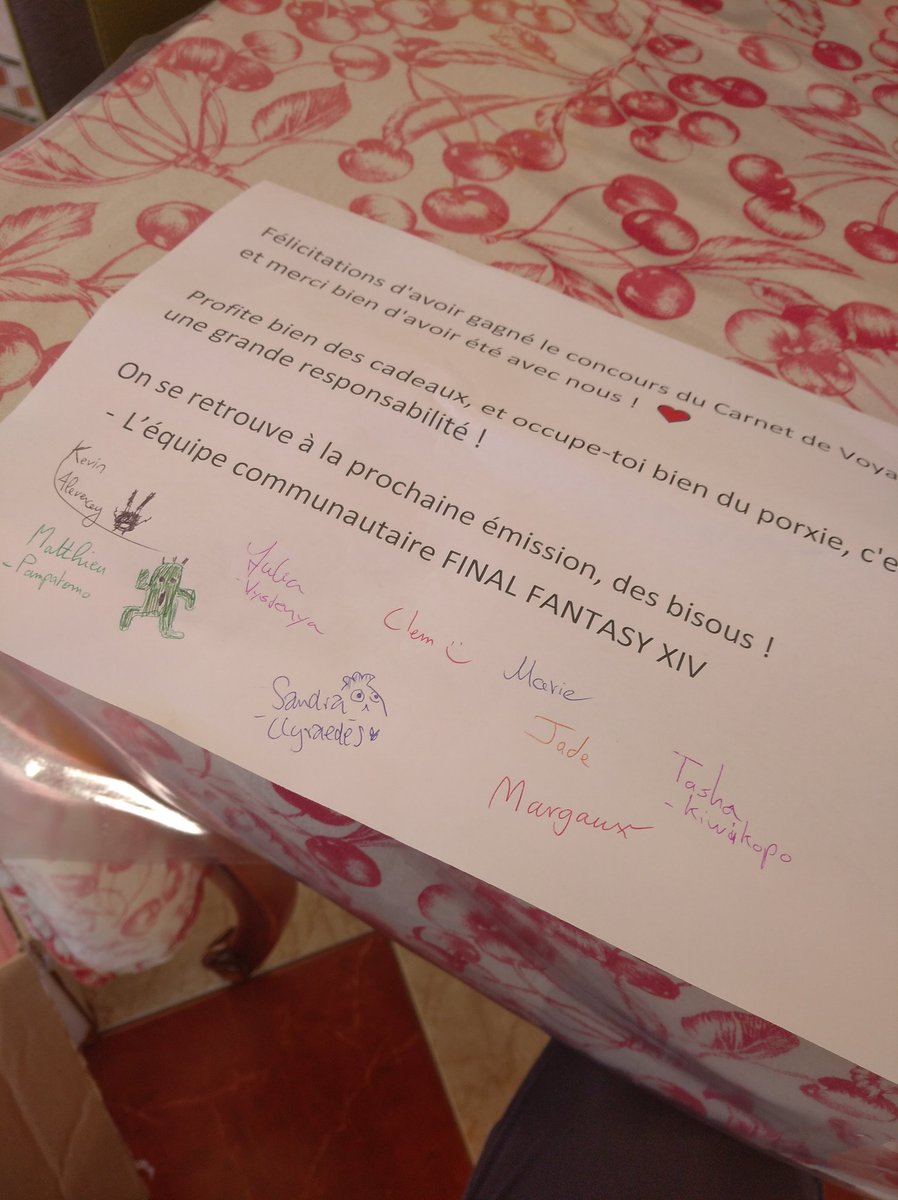 Félicitations d'avoir gagné le concours du Carnet de Voya
et merci bien d'avoir été avec nous !
Profite bien des cadeaux, et occupe-toi bien du porxie, c'e
une grande responsabilité !
On se retrouve à la prochaine émission, des bisous !
- L'équipe communautaire FINAL FANTASY XIV
Kevin
Matthieu
- Pampatomo
Julia
- Vystenya
Clem
Marie
Sandra
Jade
Margaux
Tasha
- kiwikopo